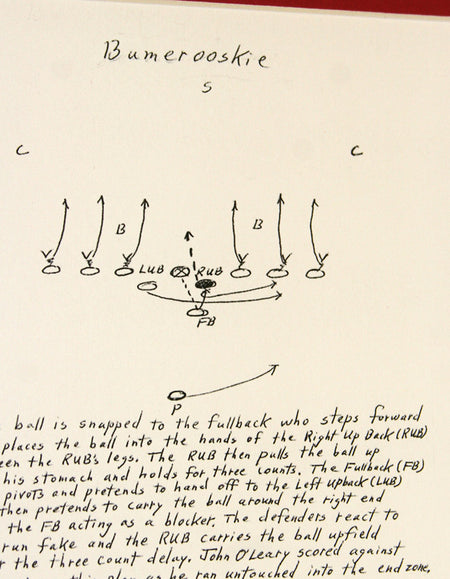 Bumerooskie
S
C C
B B
LUB RUB
FB
P
ball is snapped to the fullback who steps forward
places the ball into the hands of the Right Up Back (RUB)
een the RUB's legs. The RUB then pulls the ball up
his stomach and holds for three counts. The Fullback (FB)
pivots and pretends to hand off to the Left Upback (LUB)
then pretends to carry the ball around the right end
the FB acting as a blocker. The defenders react to
run fake and the RUB carries the ball upfield
r the three count delay. John O'Leary scored against
this play as he ran untouched into the endzone.